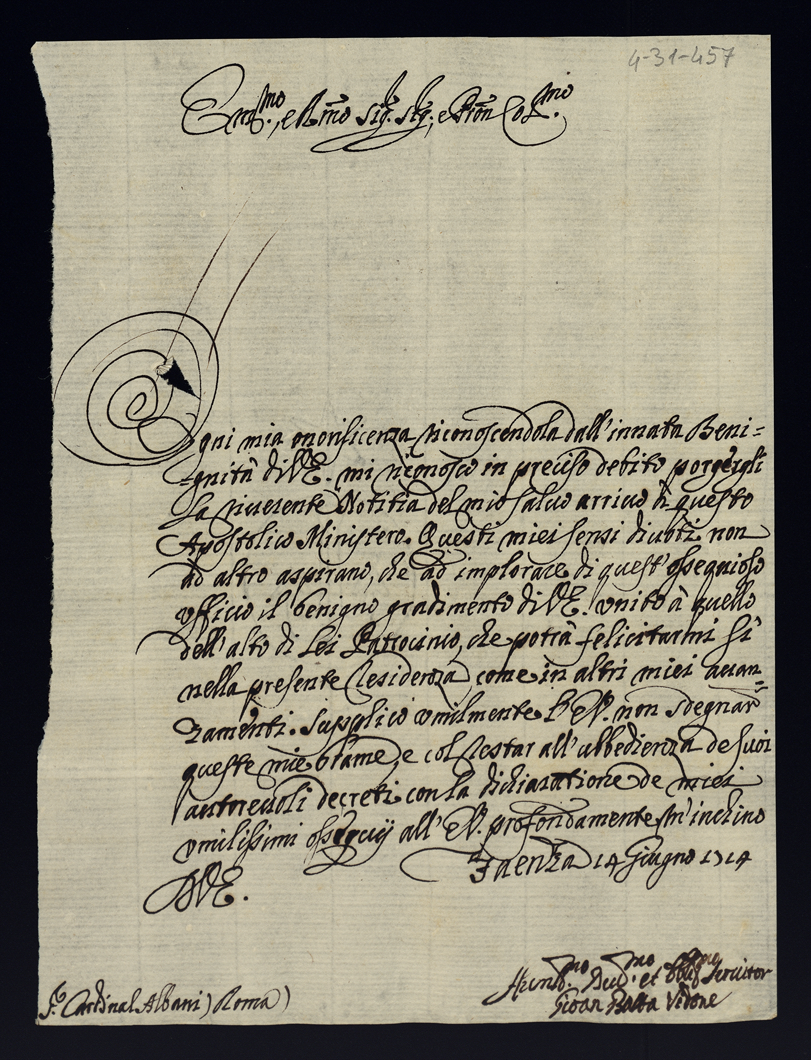 4-31-457
Em.mo, e R.mo Sig. Sig., e Pron Col.mo
Ogni mia onorificenza riconoscendola dall'innata Beni=
gnità di V.E. mi riconosco in preciso debito porgergli
la riuerente Notitia del mio saluo arriuo à questo
Apostolico Ministero. Questi miei sensi diuoti non
ad altro aspirano, che ad implorare di quest'ossequioso
vfficio il benigno gradimento di V.E. vnito à quello
dell'alto di Lei Patrocinio, che potrà felicitarmi sì
nella presente Residenza, come in altri miei auan=
zamenti. Supplico vmilmente l'E.V. non sdegnar
queste mie brame, e col restar all'ubbedienza de suoi
autoreuoli decreti con la dichiaratione de miei
vmilissimi ossequij all'E.V. profondamente m'inchino
Faenza 14 Giugno 1714
D.V.E.
S.r Cardinal Albani) Roma)
Hum.mo Diu.mo et Obl.mo Seruitor
Gioan Batta Vidone